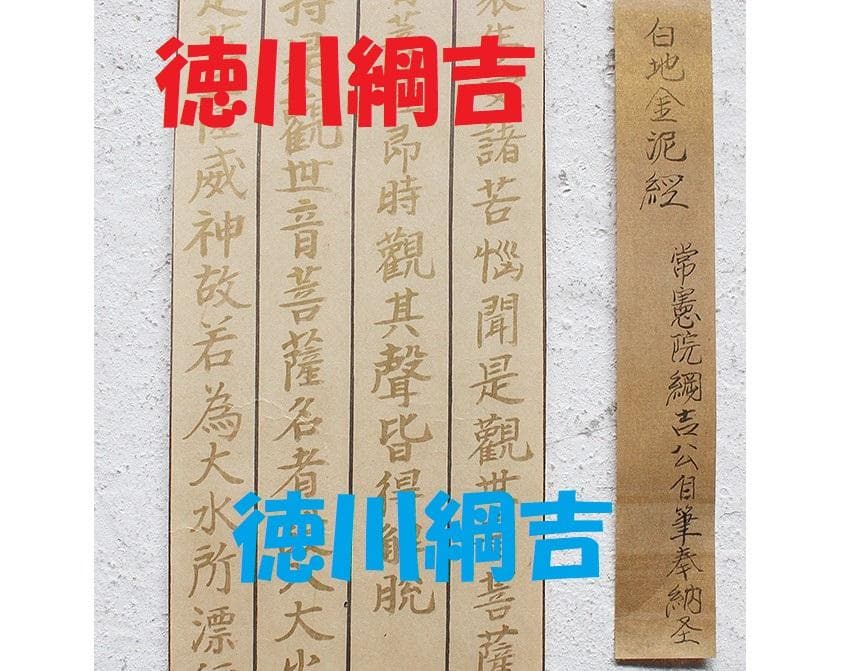 徳川綱吉
徳川綱吉
白地金泥經
常憲院綱吉公自筆奉納圣
諸苦惱聞是觀世音菩薩
即時觀其聲皆得解脫
持是觀世音菩薩名者設入大火
威神故若為大水所漂